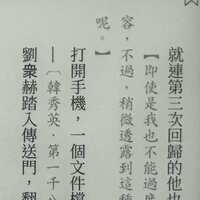 就連第三次回歸的他也
【即使是我也不能過度
容，不過，稍微透露到這種
呢。】
打開手機，一個文件檔
—〔韓秀英．第一千八
劉衆赫踏入傳送門，翻